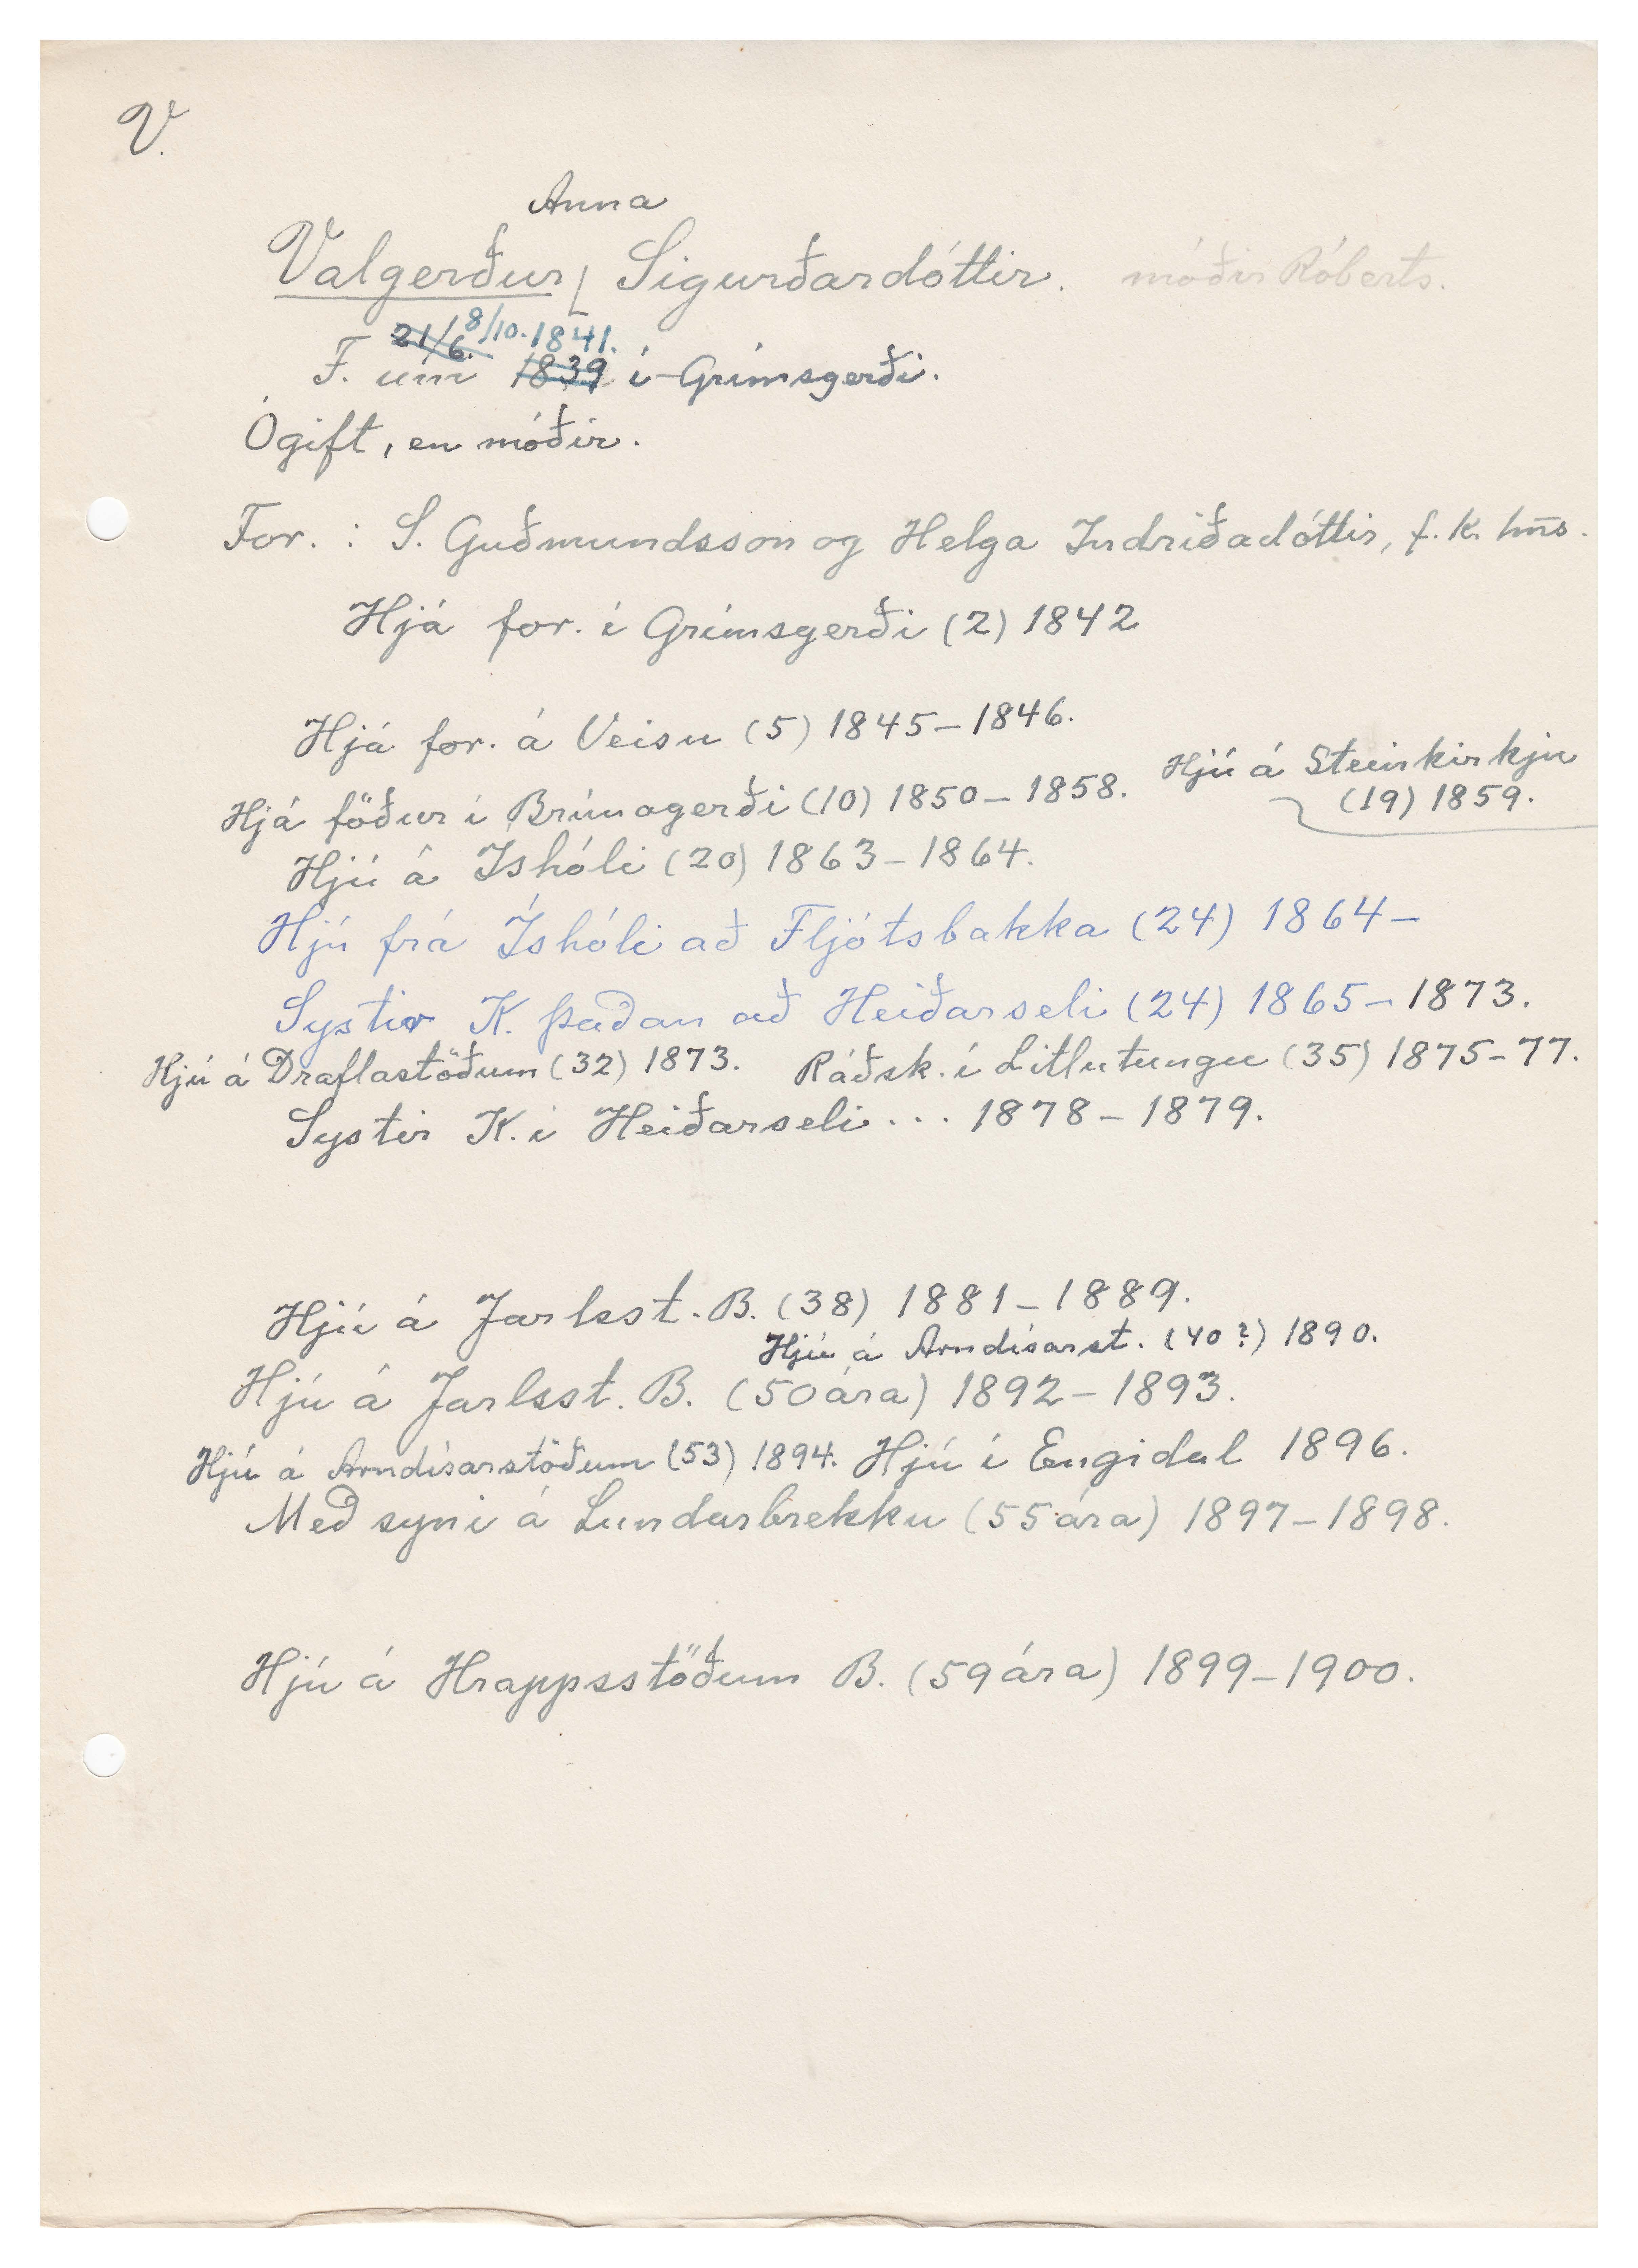 V.
Anna
Valgerður Sigurðardóttir. móðir Róberts.
21/6. 8/10. 1841.
F. um 1839 í Grímsgerði.
Ógift, en móðir.
For. : S. Guðmundsson og Helga Indriðadóttir, f. k. hns.
Hjá for. í Grímsgerði (2) 1842
Hjá for. á Veisu (5) 1845–1846.
Hjú á Steinkirkju
(19) 1859.
Hjá föður í Brúnagerði (10) 1850–1858.
Hjú á Íshóli (20) 1863–1864.
Hjú frá Íshóli að Fljótsbakka (24) 1864–
Systir K. þaðan að Heiðarseli (24) 1865–1873.
Hjú á Draflastöðum (32) 1873. Ráðsk. í Litlutungu (35) 1875–77.
Systir K. í Heiðarseli ... 1878–1879.
Hjú á Jarlsst. B. (38) 1881–1889.
Hjú á Arndísarst. (40?) 1890.
Hjú á Jarlsst. B. (50 ára) 1892–1893.
Hjú á Arndísarstöðum (53) 1894. Hjú í Engidal 1896.
Með syni á Lundarbrekku (55 ára) 1897–1898.
Hjú á Hrappsstöðum B. (59 ára) 1899–1900.